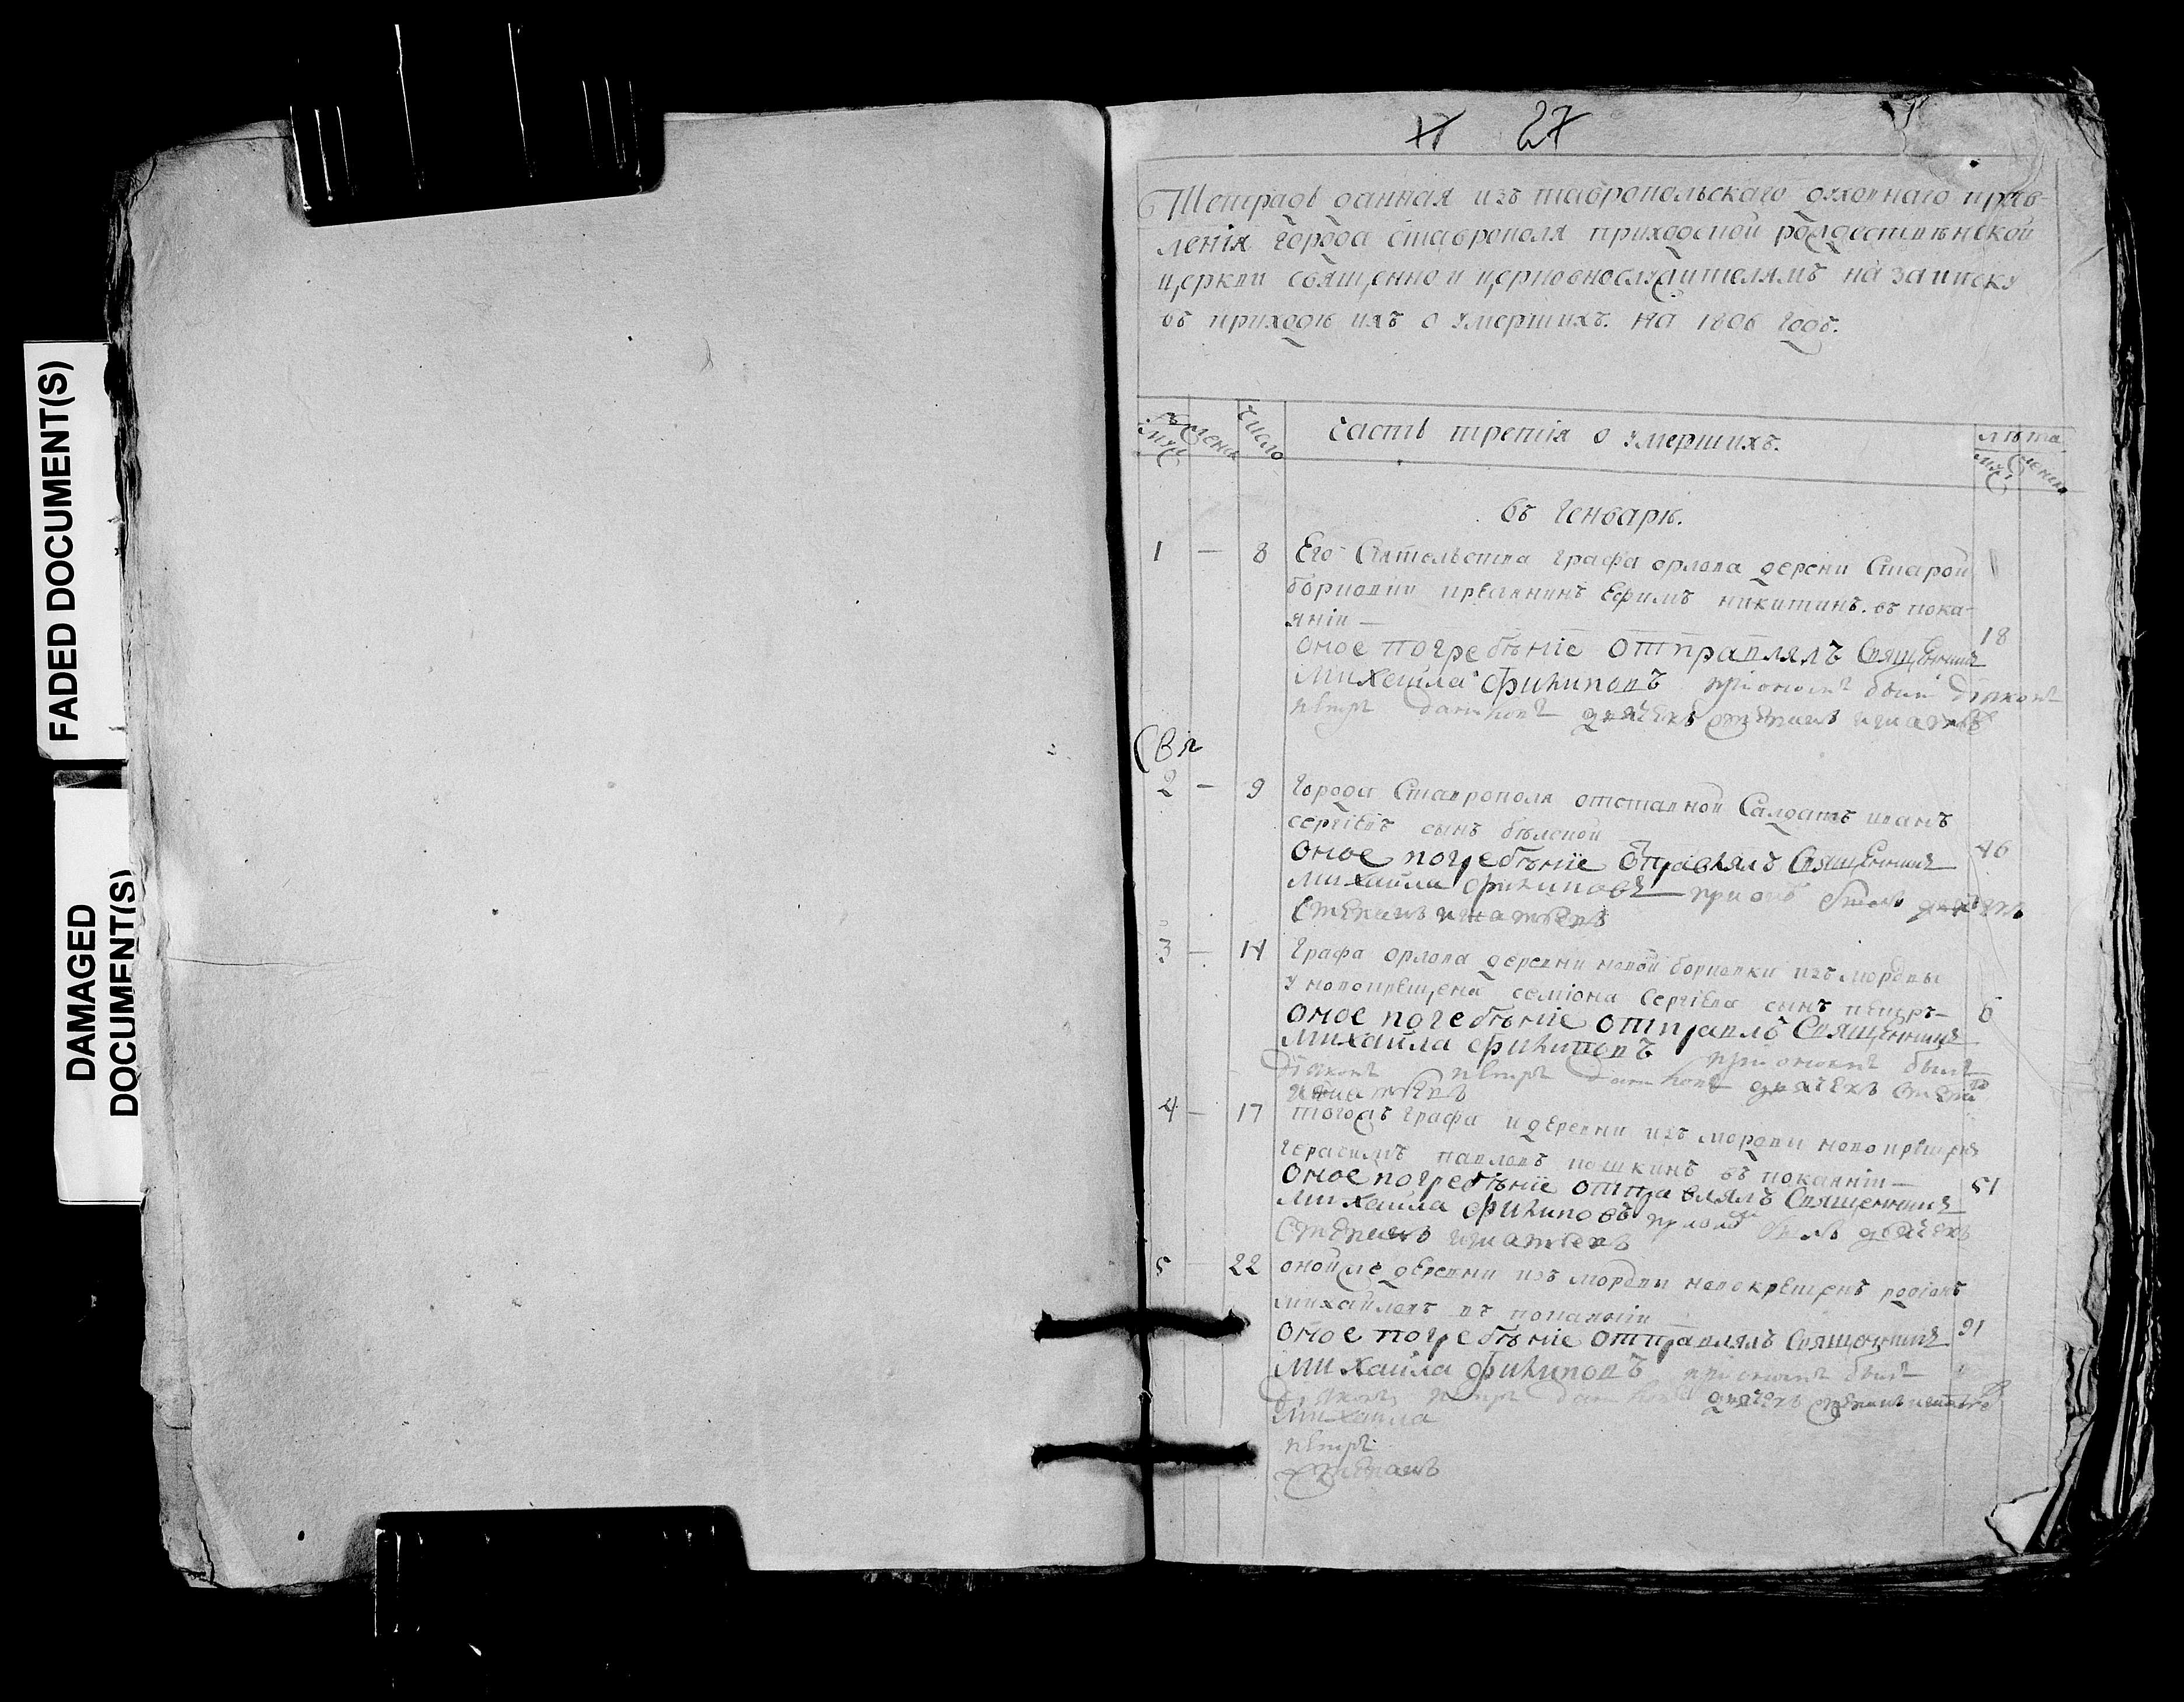 FADED DOCUMENT(S)
DAMAGED
DOCUMENT(S)
17 27
Тетрадь данная изъ тавропольскаго духовнаго прав-
ленія города ставрополя приходской рождественской
церкви священно и церковнослужителямъ на записку
въ приходѣ ихъ о умершихъ. на 1806 годъ.
мужс. женск. число часть третія о умершихъ. лѣта
муж женск
въ генварѣ.
1 — 8 Его Сіятельства графа орлова дерени Старой
борковки крѣстьянинъ Ефимъ никитинъ. въ пока-
яніи — 18
оное погребѣніе отправлялъ Священникъ
Михейла филиповъ при ономъ былъ діяконъ
петръ дьячекъ стефанъ игнатьевъ
2 — 9 города Ставрополя отставной Салдатъ иванъ
сергіевъ сынъ бѣлской 46
оное погребѣніе отправлялъ Священникъ
михаила филиповъ при ономъ былъ дьячекъ
Стефанъ игнатьевъ
3 — 14 графа орлова деревни новой борковки изъ мордвы
у новокрещена семіона сергіева сынъ петръ — 6
оное погебѣніе отправлъ Священникъ
михаила филиповъ при ономъ былъ
діяконъ петръ дьячекъ Стефанъ
игнатьевъ
4 — 17 тогожъ графа и деревни изъ мордвы новокрещенъ
герасимъ павловъ пошкинъ въ покаяніи — 51
оное погребѣніе отправлялъ Священникъ
михаила филиповъ при ономъ былъ дьячекъ
Стефанъ игнатьевъ
5 — 22 оной же деревни изъ мордвы новокрещенъ родіонъ
михайловъ въ покаяніи 91
оное погребѣніе отправлялъ Священникъ
михаила филиповъ при ономъ былъ
діяконъ петръ дьячекъ стефанъ игнатьевъ
Михаила
петръ
стефанъ